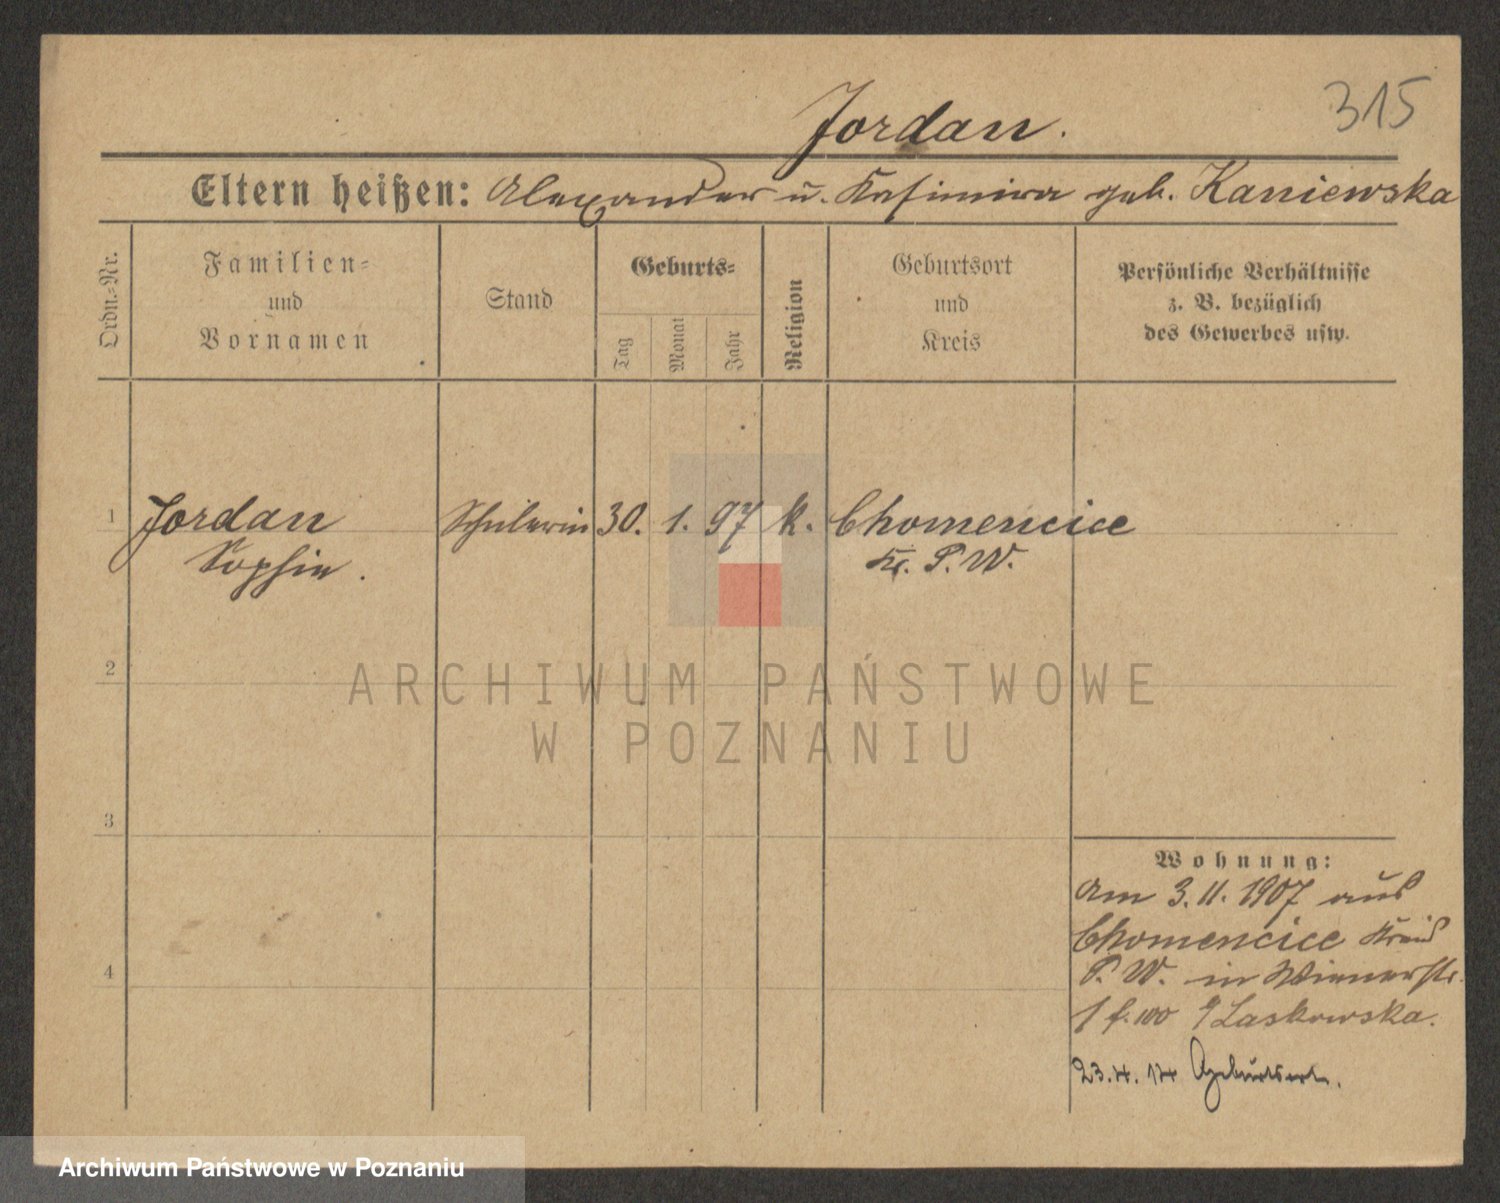 315
Jordan.
Eltern heißen: Alexander u. Kasimira geb. Kaniewska
Ordn.-Nr.
Familien-
und
Vornamen
Stand
Geburts-
Tag
Monat
Jahr
Religion
Geburtsort
und
Kreis
Persönliche Verhältnisse
z. B. bezüglich
des Gewerbes usw.
1 Jordan Schülerin 30. 1. 97 k. Chomencice
Sophie. Kr. P. W.
2
3
4
Wohnung:
Am 3.11.1907 aus
Chomencice Kreis
P. W. in Wienerstr.
1 b/Laskowska.
23.4.14 Geburtsort.
ARCHIWUM PAŃSTWOWE
W POZNANIU
Archiwum Państwowe w Poznaniu